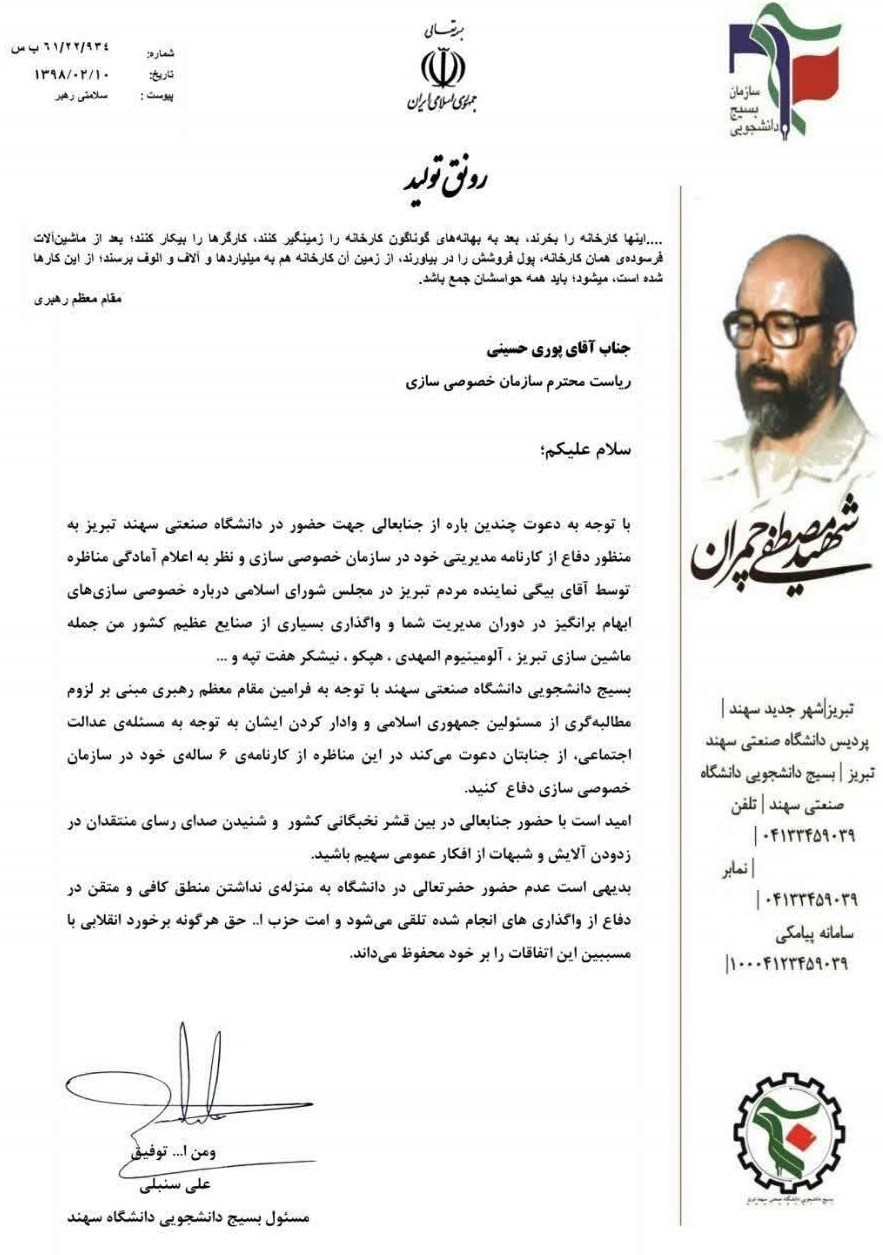 برتعالی
جمهوری اسلامی ایران
شماره: ٦١/٢٢/٩٣٤ ب س
تاریخ: ۱۳۹۸/۰۲/۱۰
پیوست : سلامتی رهبر
سازمان
بسیج
دانشجویی
رونق تولید
....اینها کارخانه را بخرند، بعد به بهانه‌های گوناگون کارخانه را زمینگیر کنند، کارگرها را بیکار کنند؛ بعد از ماشین‌آلات
فرسوده‌ی همان کارخانه، پول فروشش را در بیاورند، از زمین آن کارخانه هم به میلیاردها و آلاف و الوف برسند؛ از این کارها
شده است، میشود؛ باید همه حواسشان جمع باشد.
مقام معظم رهبری
جناب آقای پوری حسینی
ریاست محترم سازمان خصوصی سازی
سلام علیکم؛
با توجه به دعوت چندین باره از جنابعالی جهت حضور در دانشگاه صنعتی سهند تبریز به
منظور دفاع از کارنامه مدیریتی خود در سازمان خصوصی سازی و نظر به اعلام آمادگی مناظره
توسط آقای بیگی نماینده مردم تبریز در مجلس شورای اسلامی درباره خصوصی سازی‌های
ابهام برانگیز در دوران مدیریت شما و واگذاری بسیاری از صنایع عظیم کشور من جمله
ماشین سازی تبریز ، آلومینیوم المهدی ، هپکو ، نیشکر هفت تپه و ...
بسیج دانشجویی دانشگاه صنعتی سهند با توجه به فرامین مقام معظم رهبری مبنی بر لزوم
مطالبه‌گری از مسئولین جمهوری اسلامی و وادار کردن ایشان به توجه به مسئله‌ی عدالت
اجتماعی، از جنابتان دعوت می‌کند در این مناظره از کارنامه‌ی ۶ ساله‌ی خود در سازمان
خصوصی سازی دفاع کنید.
امید است با حضور جنابعالی در بین قشر نخبگانی کشور و شنیدن صدای رسای منتقدان در
زدودن آلایش و شبهات از افکار عمومی سهیم باشید.
بدیهی است عدم حضور حضرتعالی در دانشگاه به منزله‌ی نداشتن منطق کافی و متقن در
دفاع از واگذاری های انجام شده تلقی می‌شود و امت حزب ا.. حق هرگونه برخورد انقلابی با
مسببین این اتفاقات را بر خود محفوظ می‌داند.
ومن ا... توفیق
علی سنبلی
مسئول بسیج دانشجویی دانشگاه سهند
شهید مصطفی چمران
تبریز|شهر جدید سهند |
پردیس دانشگاه صنعتی سهند
تبریز | بسیج دانشجویی دانشگاه
صنعتی سهند | تلفن
۰۴۱۳۳۴۵۹۰۳۹ |
| نمابر
۰۴۱۳۳۴۵۹۰۳۹ |
سامانه پیامکی
۱۰۰۰۴۱۲۳۴۵۹۰۳۹|
بسیج دانشجویی دانشگاه صنعتی سهند تبریز